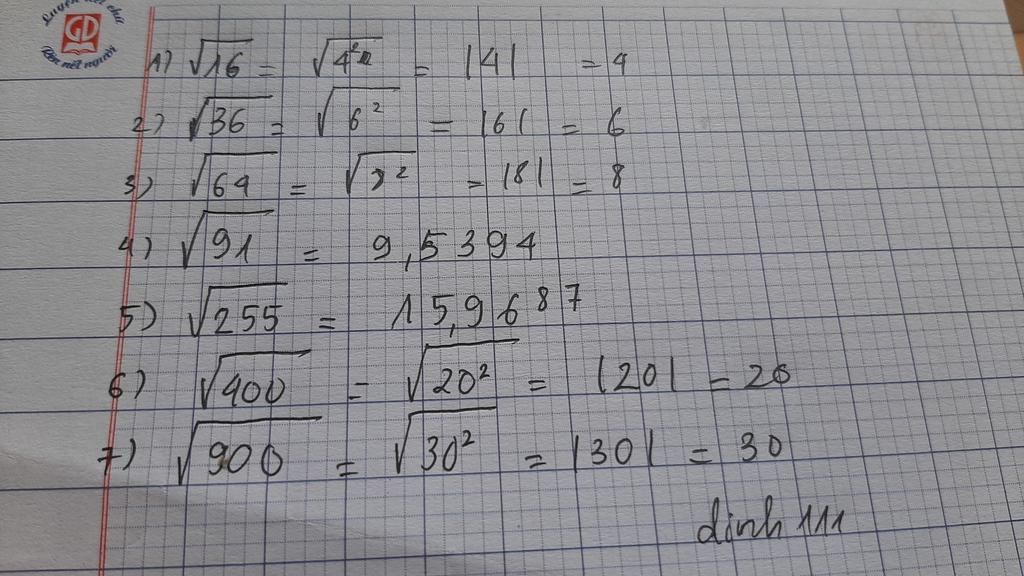 Luyện nét chữ
GD
Rèn nết người
1) √16 = √4² = |4| = 4
2) √36 = √6² = |6| = 6
3) √64 = √8² = |8| = 8
4) √91 = 9,5394
5) √255 = 15,9687
6) √400 = √20² = |20| = 20
7) √900 = √30² = |30| = 30
dinh 111